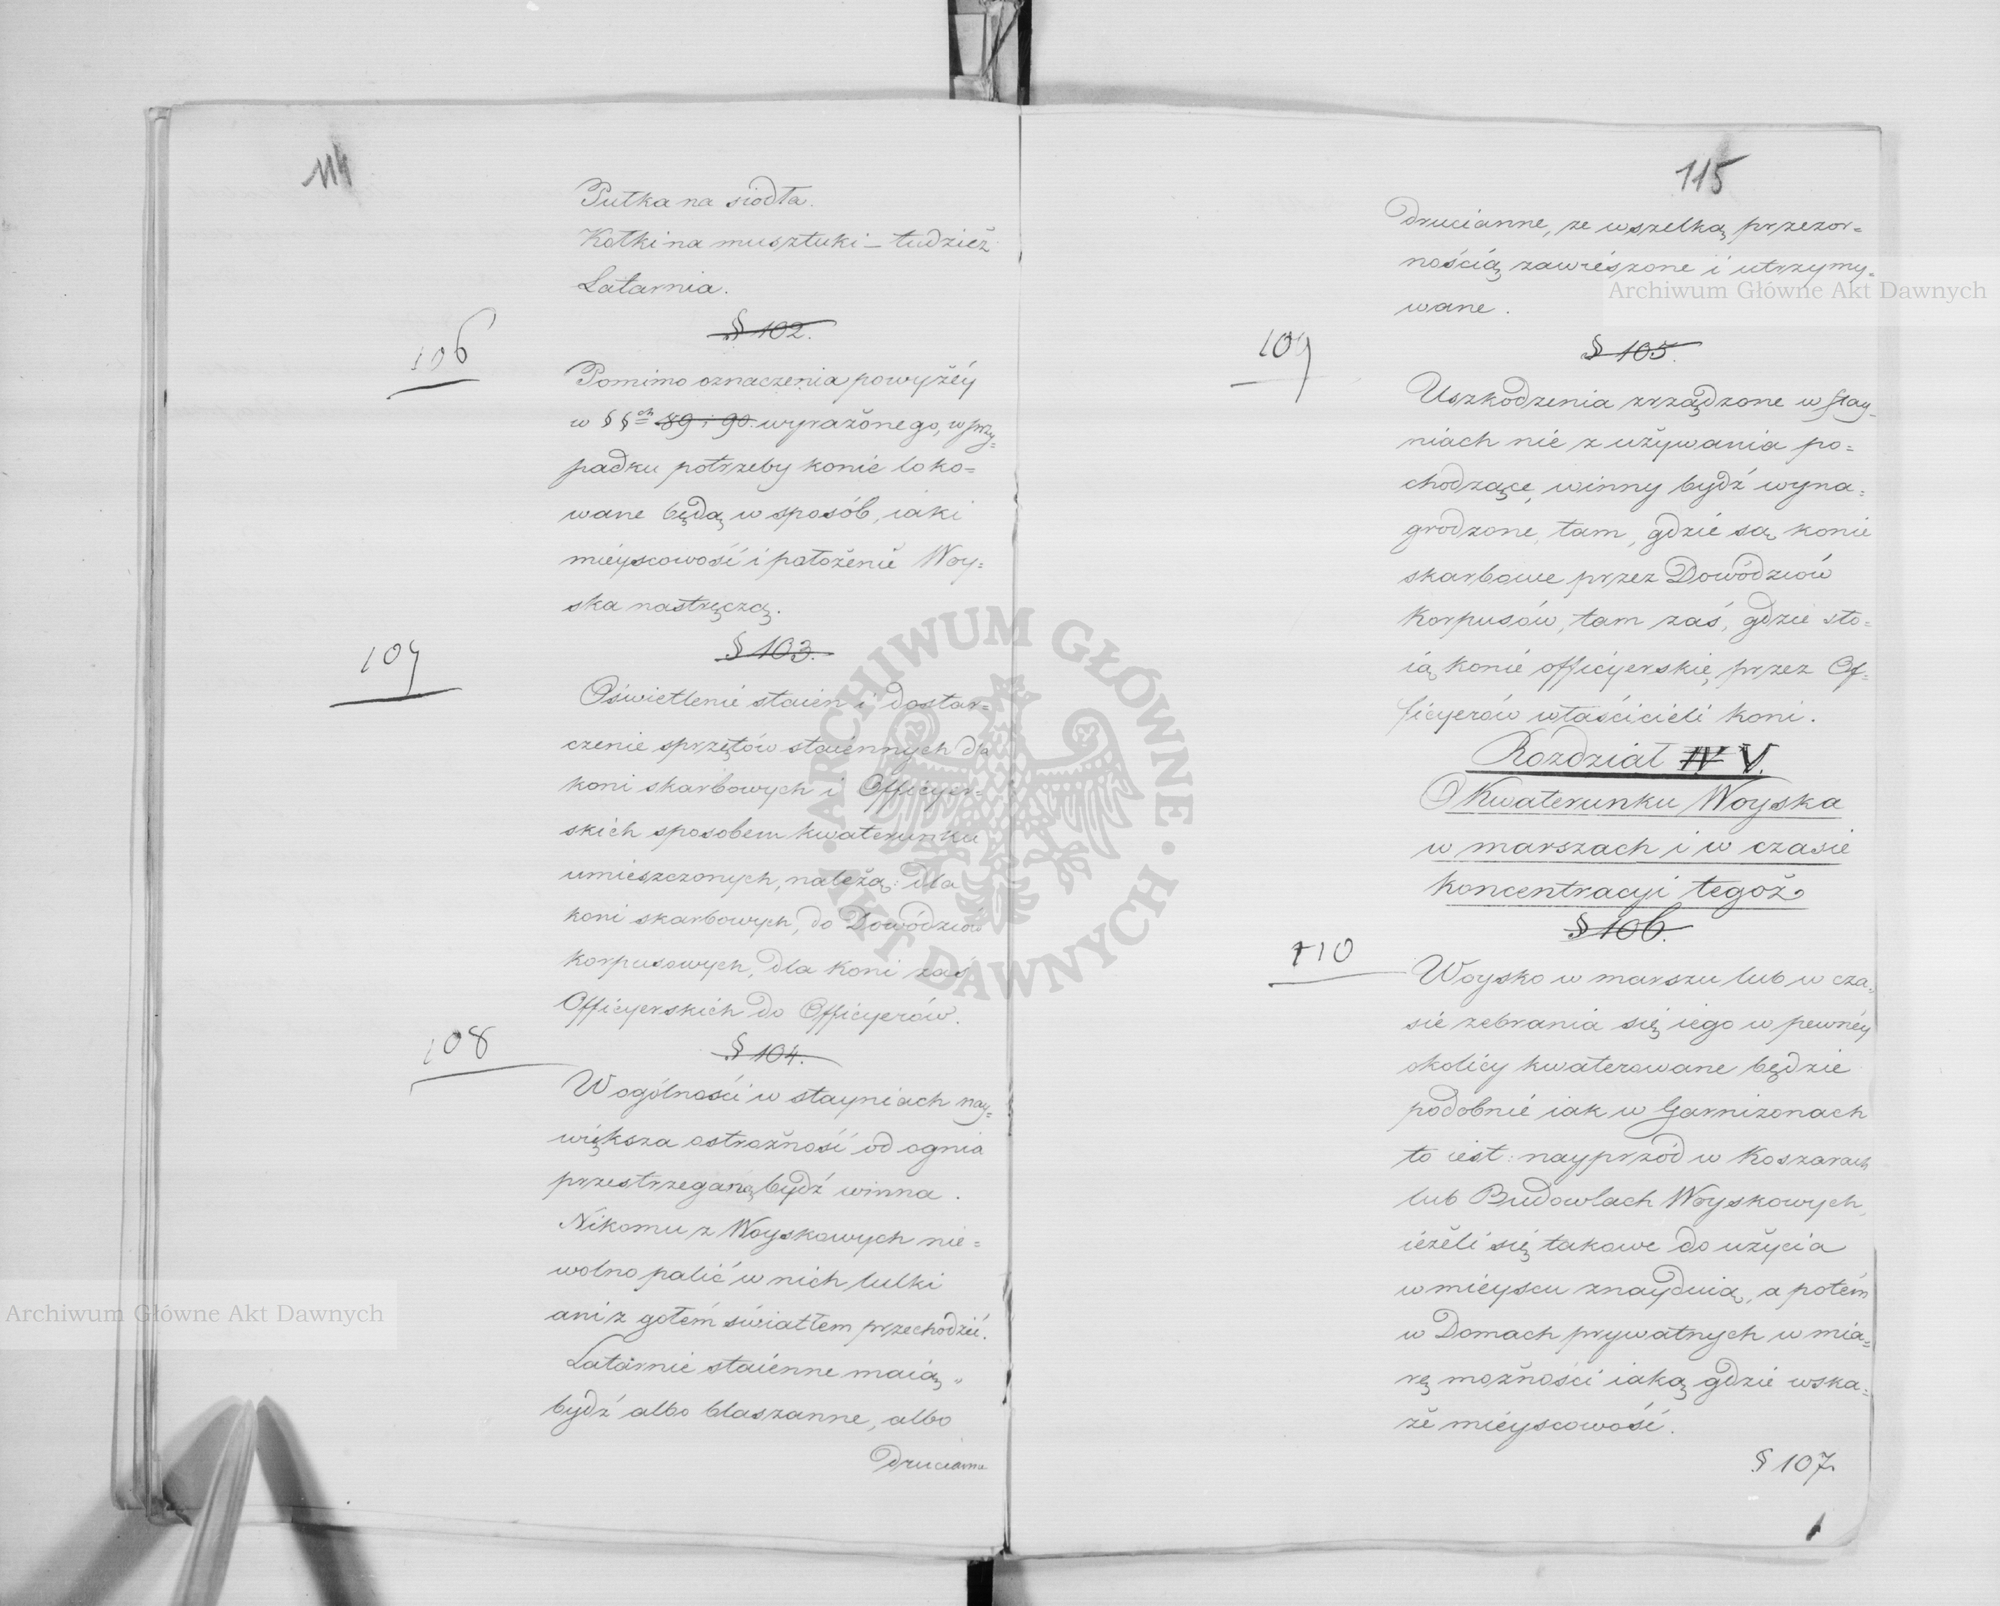 114
Pułka na siodła.
Kołki na musztuki – tudzież
Latarnia.
§ 102.
106
Pomimo oznaczenia powyżéy
w §§ch 89 i 90. wyrażonego, w przy=
padku potrzeby konie loko=
wane będą w sposób, iaki
mieyscowość i położenie Woy=
ska nastręczą.
§ 103.
107
Oświetlenie staien i dostar=
czenie sprzętów staiennych dla
koni skarbowych i Officyer=
skich sposobem kwaterunku
umieszczonych, należą: dla
koni skarbowych, do Dowódzców
korpusowych, dla koni zaś
Officyerskich do Officyerów.
§ 104.
108
W ogólności w stayniach nay=
większa ostrożność od ognia
przestrzeganą bydź winna.
Nikomu z Woyskowych nie=
wolno palić w nich lulki
ani z gołém światłem przechodzić.
Latarnie staienne maią
bydź albo blaszanne, albo
drucianne
115
drucianne, ze wszelką przezor=
nością zawieszone i utrzymy=
wane.
§ 105.
109
Uszkodzenia zrządzone w stay=
niach nie z używania po=
chodzące, winny bydź wyna=
grodzone, tam, gdzie są konie
skarbowe przez Dowódzców
Korpusów, tam zaś, gdzie sto=
ią konie officyerskie, przez Of=
ficyerów właścicieli koni.
Rozdział IV V.
O Kwaterunku Woyska
w marszach i w czasie
koncentracyi tegoż
§ 106.
110
Woysko w marszu lub w cza=
sie zebrania się iego w pewnéy
okolicy kwaterowane będzie
podobnie iak w Garnizonach
to iest: nayprzód w Koszarach
lub Budowlach Woyskowych,
ieżeli się takowe do użycia
w mieyscu znayduią, a potém
w Domach prywatnych w mia=
rę możności iaką gdzie wska=
że mieyscowość.
§ 107.
Archiwum Główne Akt Dawnych
Archiwum Główne Akt Dawnych
ARCHIWUM GŁÓWNE · AKT DAWNYCH ·